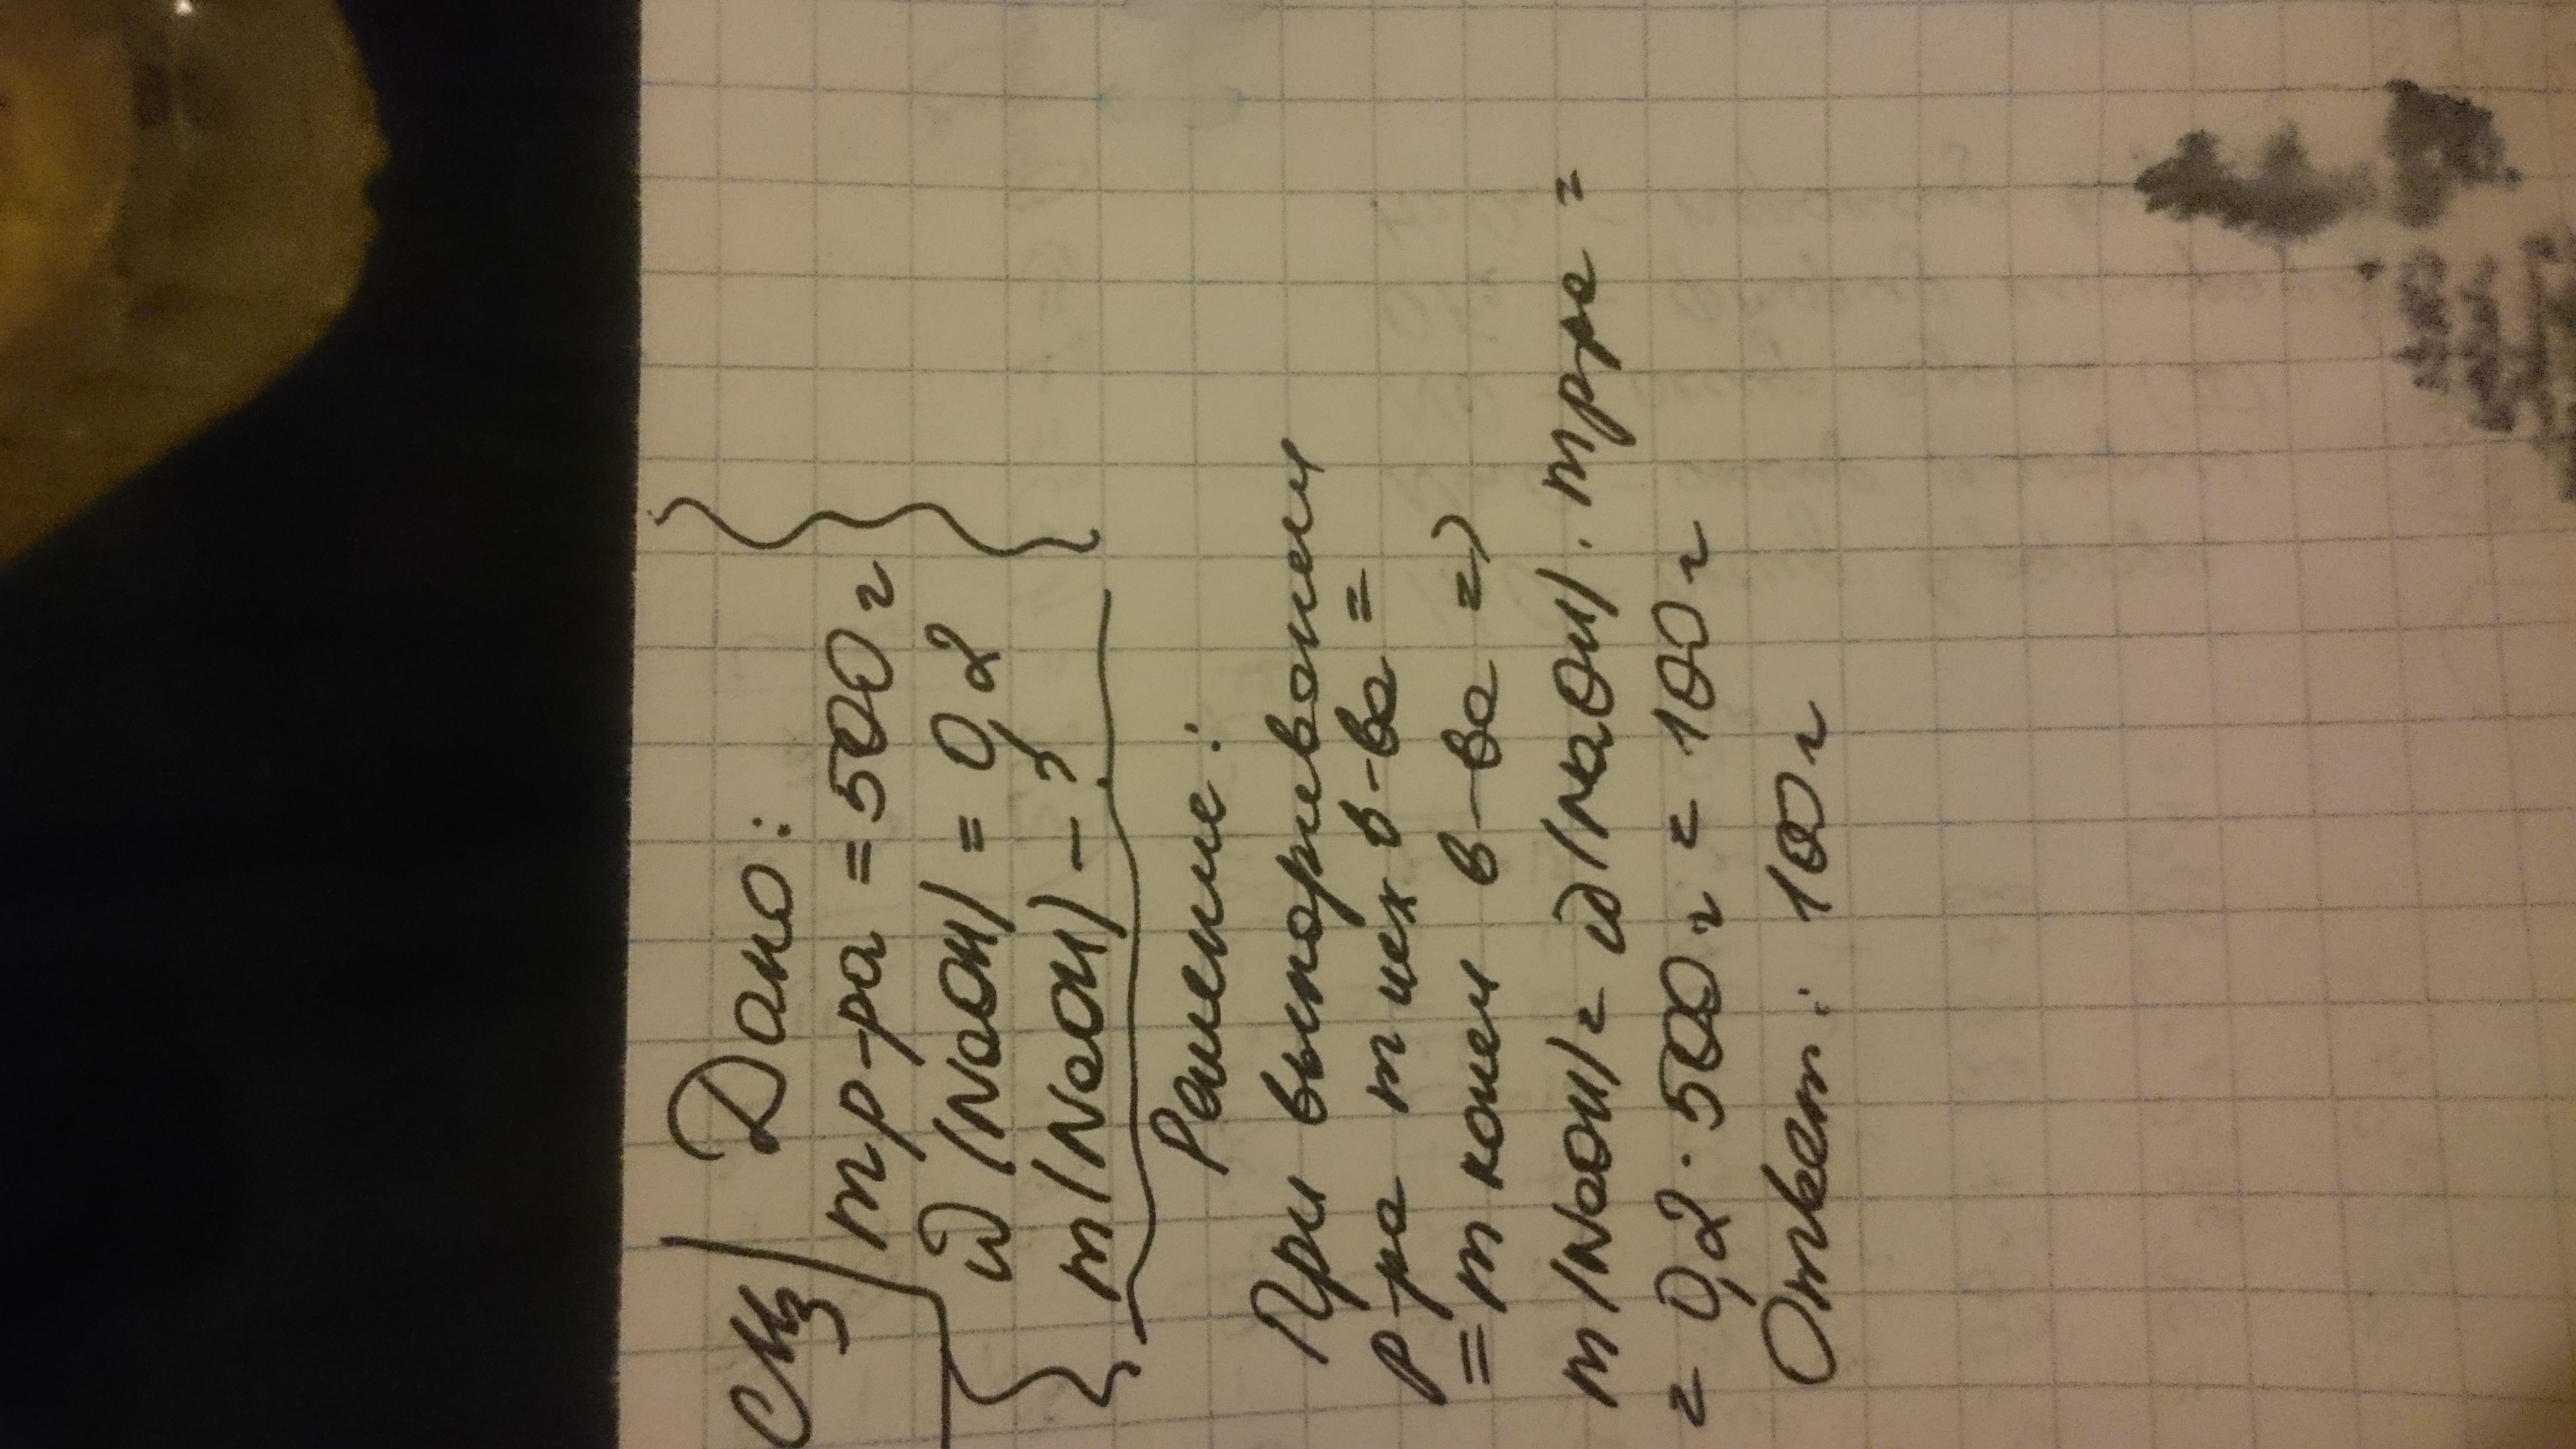 СМ3 Дано:
m р-ра = 500 г
ω (NaOH) = 0,2
m (NaOH) - ?
Решение:
При выпаривании
р-ра m исх в-ва =
= m конеч в-ва =>
m (NaOH) = ω (NaOH) · m р-ра =
= 0,2 · 500 г = 100 г
Ответ: 100 г